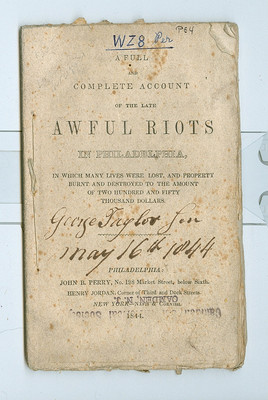 WZ8 Per
P84
A FULL
AND
COMPLETE ACCOUNT
OF THE LATE
AWFUL RIOTS
IN PHILADELPHIA,
IN WHICH MANY LIVES WERE LOST, AND PROPERTY
BURNT AND DESTROYED TO THE AMOUNT
OF TWO HUNDRED AND FIFTY
THOUSAND DOLLARS.
George Taylor Sen
may 16th 1844
PHILADELPHIA:
JOHN B. PERRY, No. 198 Market Street, below Sixth.
HENRY JORDAN, Corner of Third and Dock Streets.
NEW YORK—NAFIS & CORNISH.
CAMDEN, N. J.
Camden County Historical Society
1844.